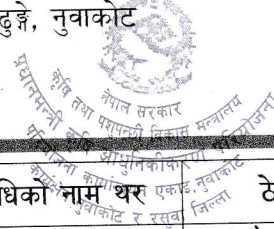 ढुङ्गे, नुवाकोट
नेपाल सरकार
कृषि तथा पशुपन्छी विकास मन्त्रालय
प्रधानमन्त्री कृषि आधुनिकीकरण परियोजना
परियोजना कार्यान्वयन एकाई, नुवाकोट
नुवाकोट र रसुवा जिल्ला
धिको नाम थर
ठे